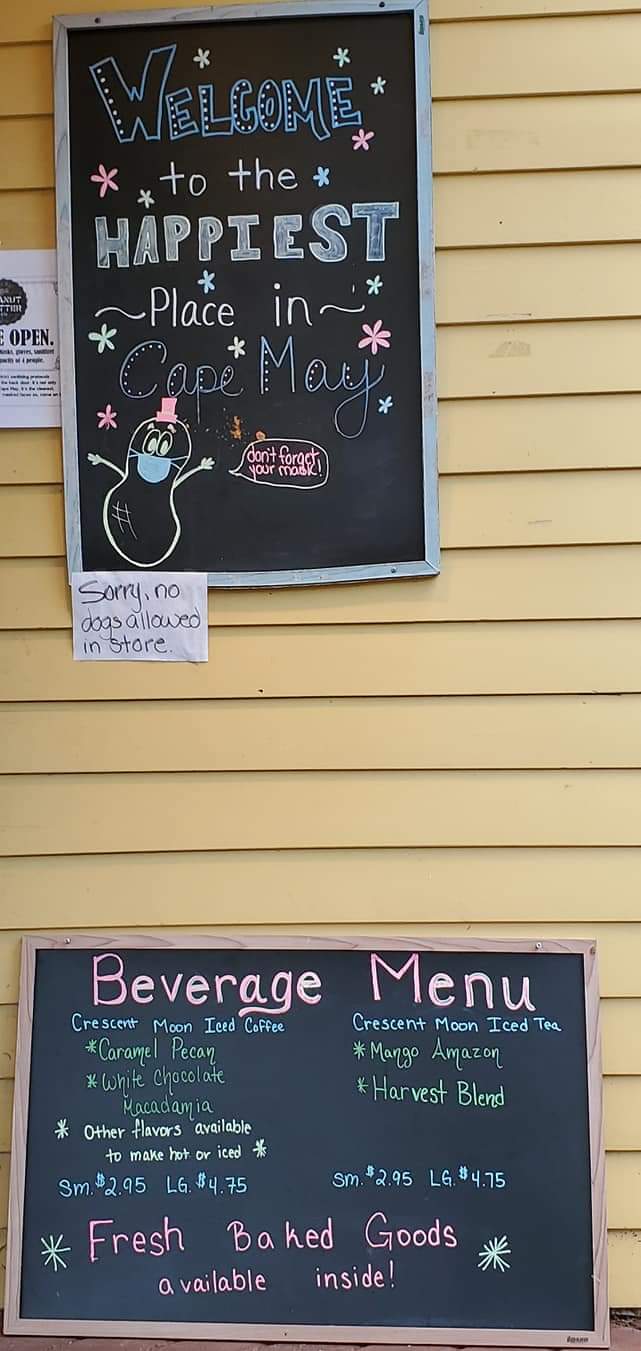 WELCOME
to the
HAPPIEST
~Place in~
Cape May
don't forget
your mask!
OPEN.
Sorry, no
dogs allowed
in store.
Beverage Menu
Crescent Moon Iced Coffee
*Caramel Pecan
*White Chocolate
Macadamia
* Other flavors available
to make hot or iced *
Sm. $2.95 LG. $4.75
Crescent Moon Iced Tea
*Mango Amazon
*Harvest Blend
Sm. $2.95 LG. $4.75
* Fresh Baked Goods *
available inside!